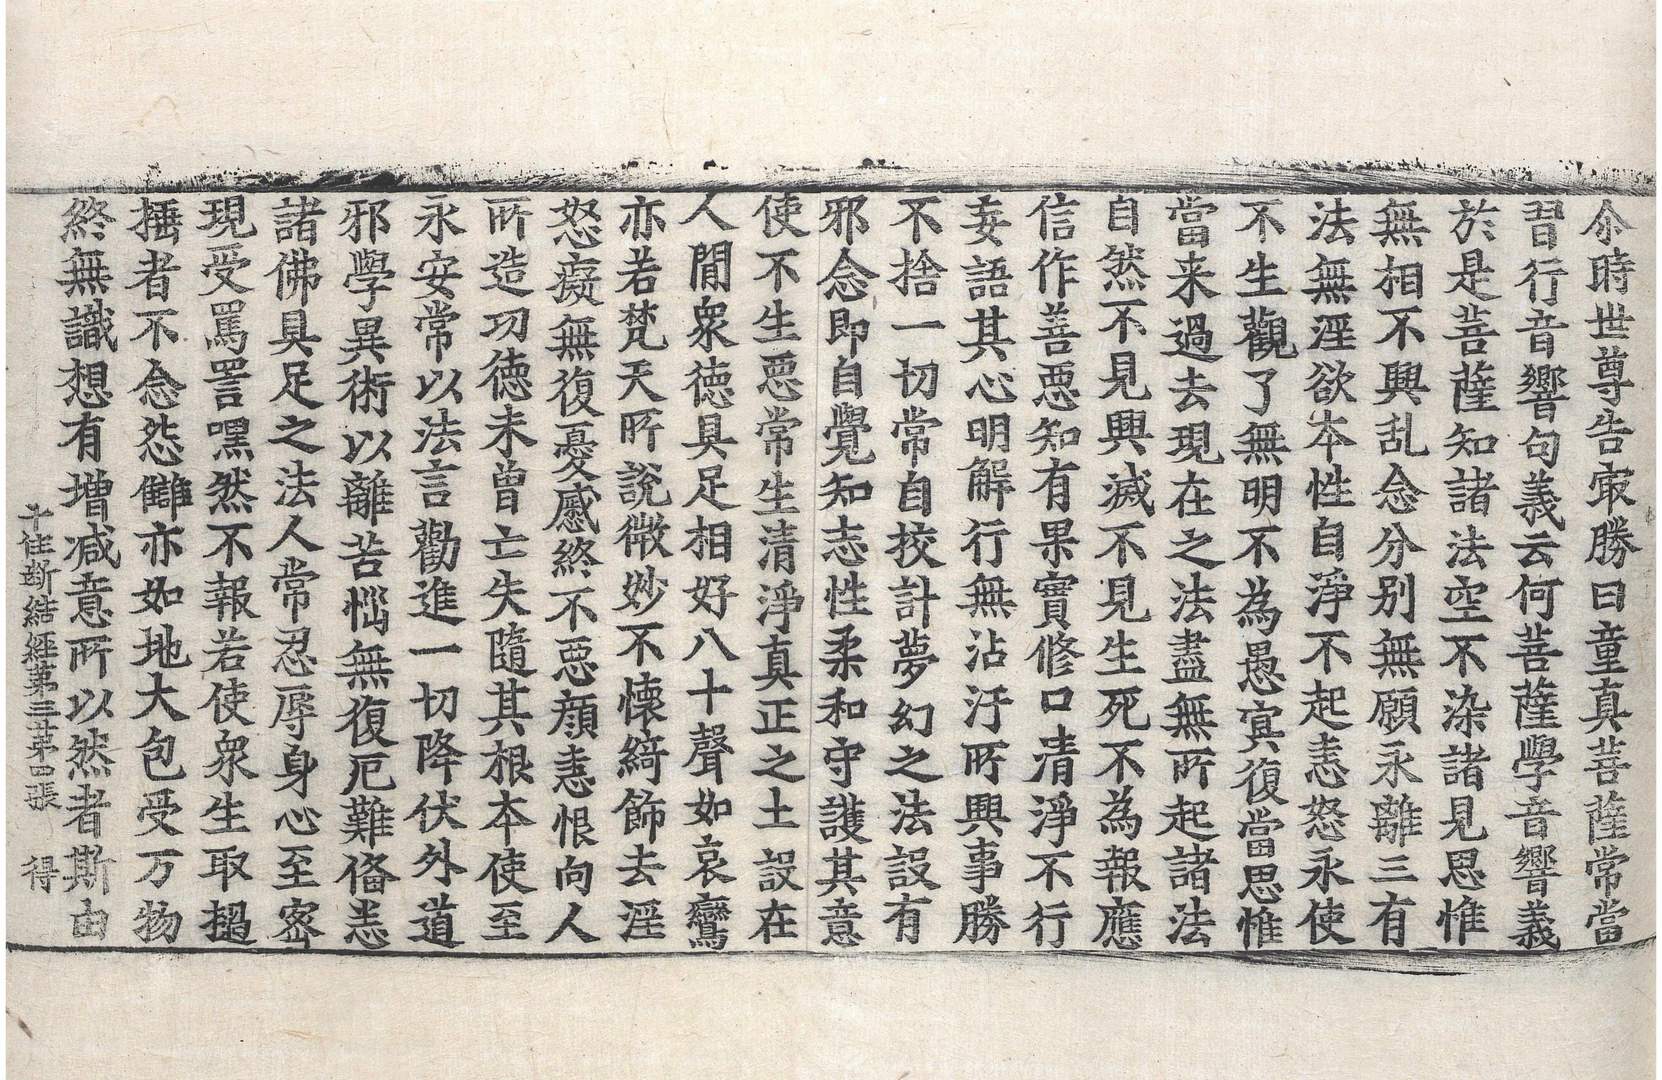 尒時世尊告㝡勝曰童真菩薩常當
習行音響句義云何菩薩學音響義
於是菩薩知諸法空不染諸見思惟
無相不興乱念分别無願永離三有
法無淫欲夲性自淨不起恚怒永使
不生觀了無明不為愚㝠復當思惟
當来過去現在之法盡無所起諸法
自然不見興滅不見生死不為報應
信作善惡知有果實修口清淨不行
妄語其心明解行無沾汙所興事勝
不捨一切常自挍計夢幻之法設有
邪念即自覺知志性柔和守護其意
使不生惡常生清淨真正之土設在
人間衆德具足相好八十聲如哀鸞
亦若梵天所説微妙不懷綺飾去淫
怒癡無復憂慼終不惡顔恚恨向人
所造功德未曾亡失隨其根本使至
永安常以法言勸進一切降伏外道
邪學異術以離苦惱無復厄難俻恚
諸佛具足之法人常忍辱身心至密
現受罵詈嘿然不報若使衆生取撾
捶者不念怨讎亦如地大包受万物
終無識想有增减意所以然者斯由
十住斷結經第三苐四張　得